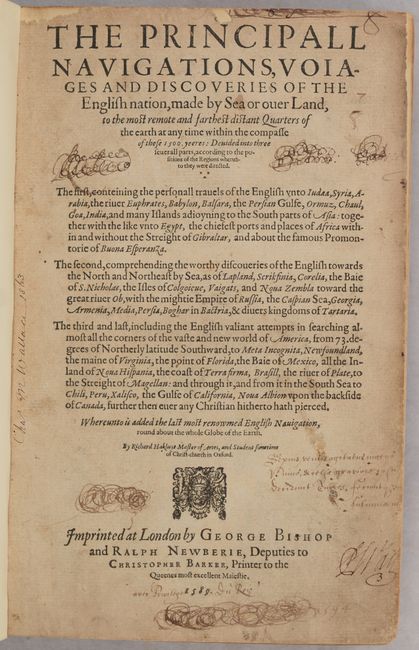 THE PRINCIPALL
NAVIGATIONS, VOIA-
GES AND DISCOVERIES OF THE
English nation, made by Sea or ouer Land,
to the most remote and farthest distant Quarters of
the earth at any time within the compasse
of these 1500. yeeres: Deuided into three
seuerall parts, according to the po-
sitions of the Regions wherun-
to they were directed.
The first, conteining the personall trauels of the English vnto Iudæa, Syria, A-
rabia, the riuer Euphrates, Babylon, Balsara, the Persian Gulfe, Ormuz, Chaul,
Goa, India, and many Islands adioyning to the South parts of Asia: toge-
ther with the like vnto Egypt, the chiefest ports and places of Africa with-
in and without the Streight of Gibraltar, and about the famous Promon-
torie of Buona Esperanza.
The second, comprehending the worthy discoueries of the English towards
the North and Northeast by Sea, as of Lapland, Scrikfinia, Corelia, the Baie
of S. Nicholas, the Isles of Colgoieue, Vaigats, and Noua Zembla toward the
great riuer Ob, with the mightie Empire of Russia, the Caspian Sea, Georgia,
Armenia, Media, Persia, Boghar in Bactria, & diuers kingdoms of Tartaria.
The third and last, including the English valiant attempts in searching al-
most all the corners of the vaste and new world of America, from 73. de-
grees of Northerly latitude Southward, to Meta Incognita, Newfoundland,
the maine of Virginia, the point of Florida, the Baie of Mexico, all the In-
land of Noua Hispania, the coast of Terra firma, Brasill, the riuer of Plate, to
the Streight of Magellan: and through it, and from it in the South Sea to
Chili, Peru, Xalisco, the Gulfe of California, Noua Albion vpon the backside
of Canada, further then euer any Christian hitherto hath pierced.
Whereunto is added the last most renowned English Nauigation,
round about the whole Globe of the Earth.
By Richard Hakluyt Master of Artes, and Student sometime
of Christ-church in Oxford.
Imprinted at London by GEORGE BISHOP
and RALPH NEWBERIE, Deputies to
CHRISTOPHER BARKER, Printer to the
Queenes most excellent Maiestie.
1589.
Wallace 1863